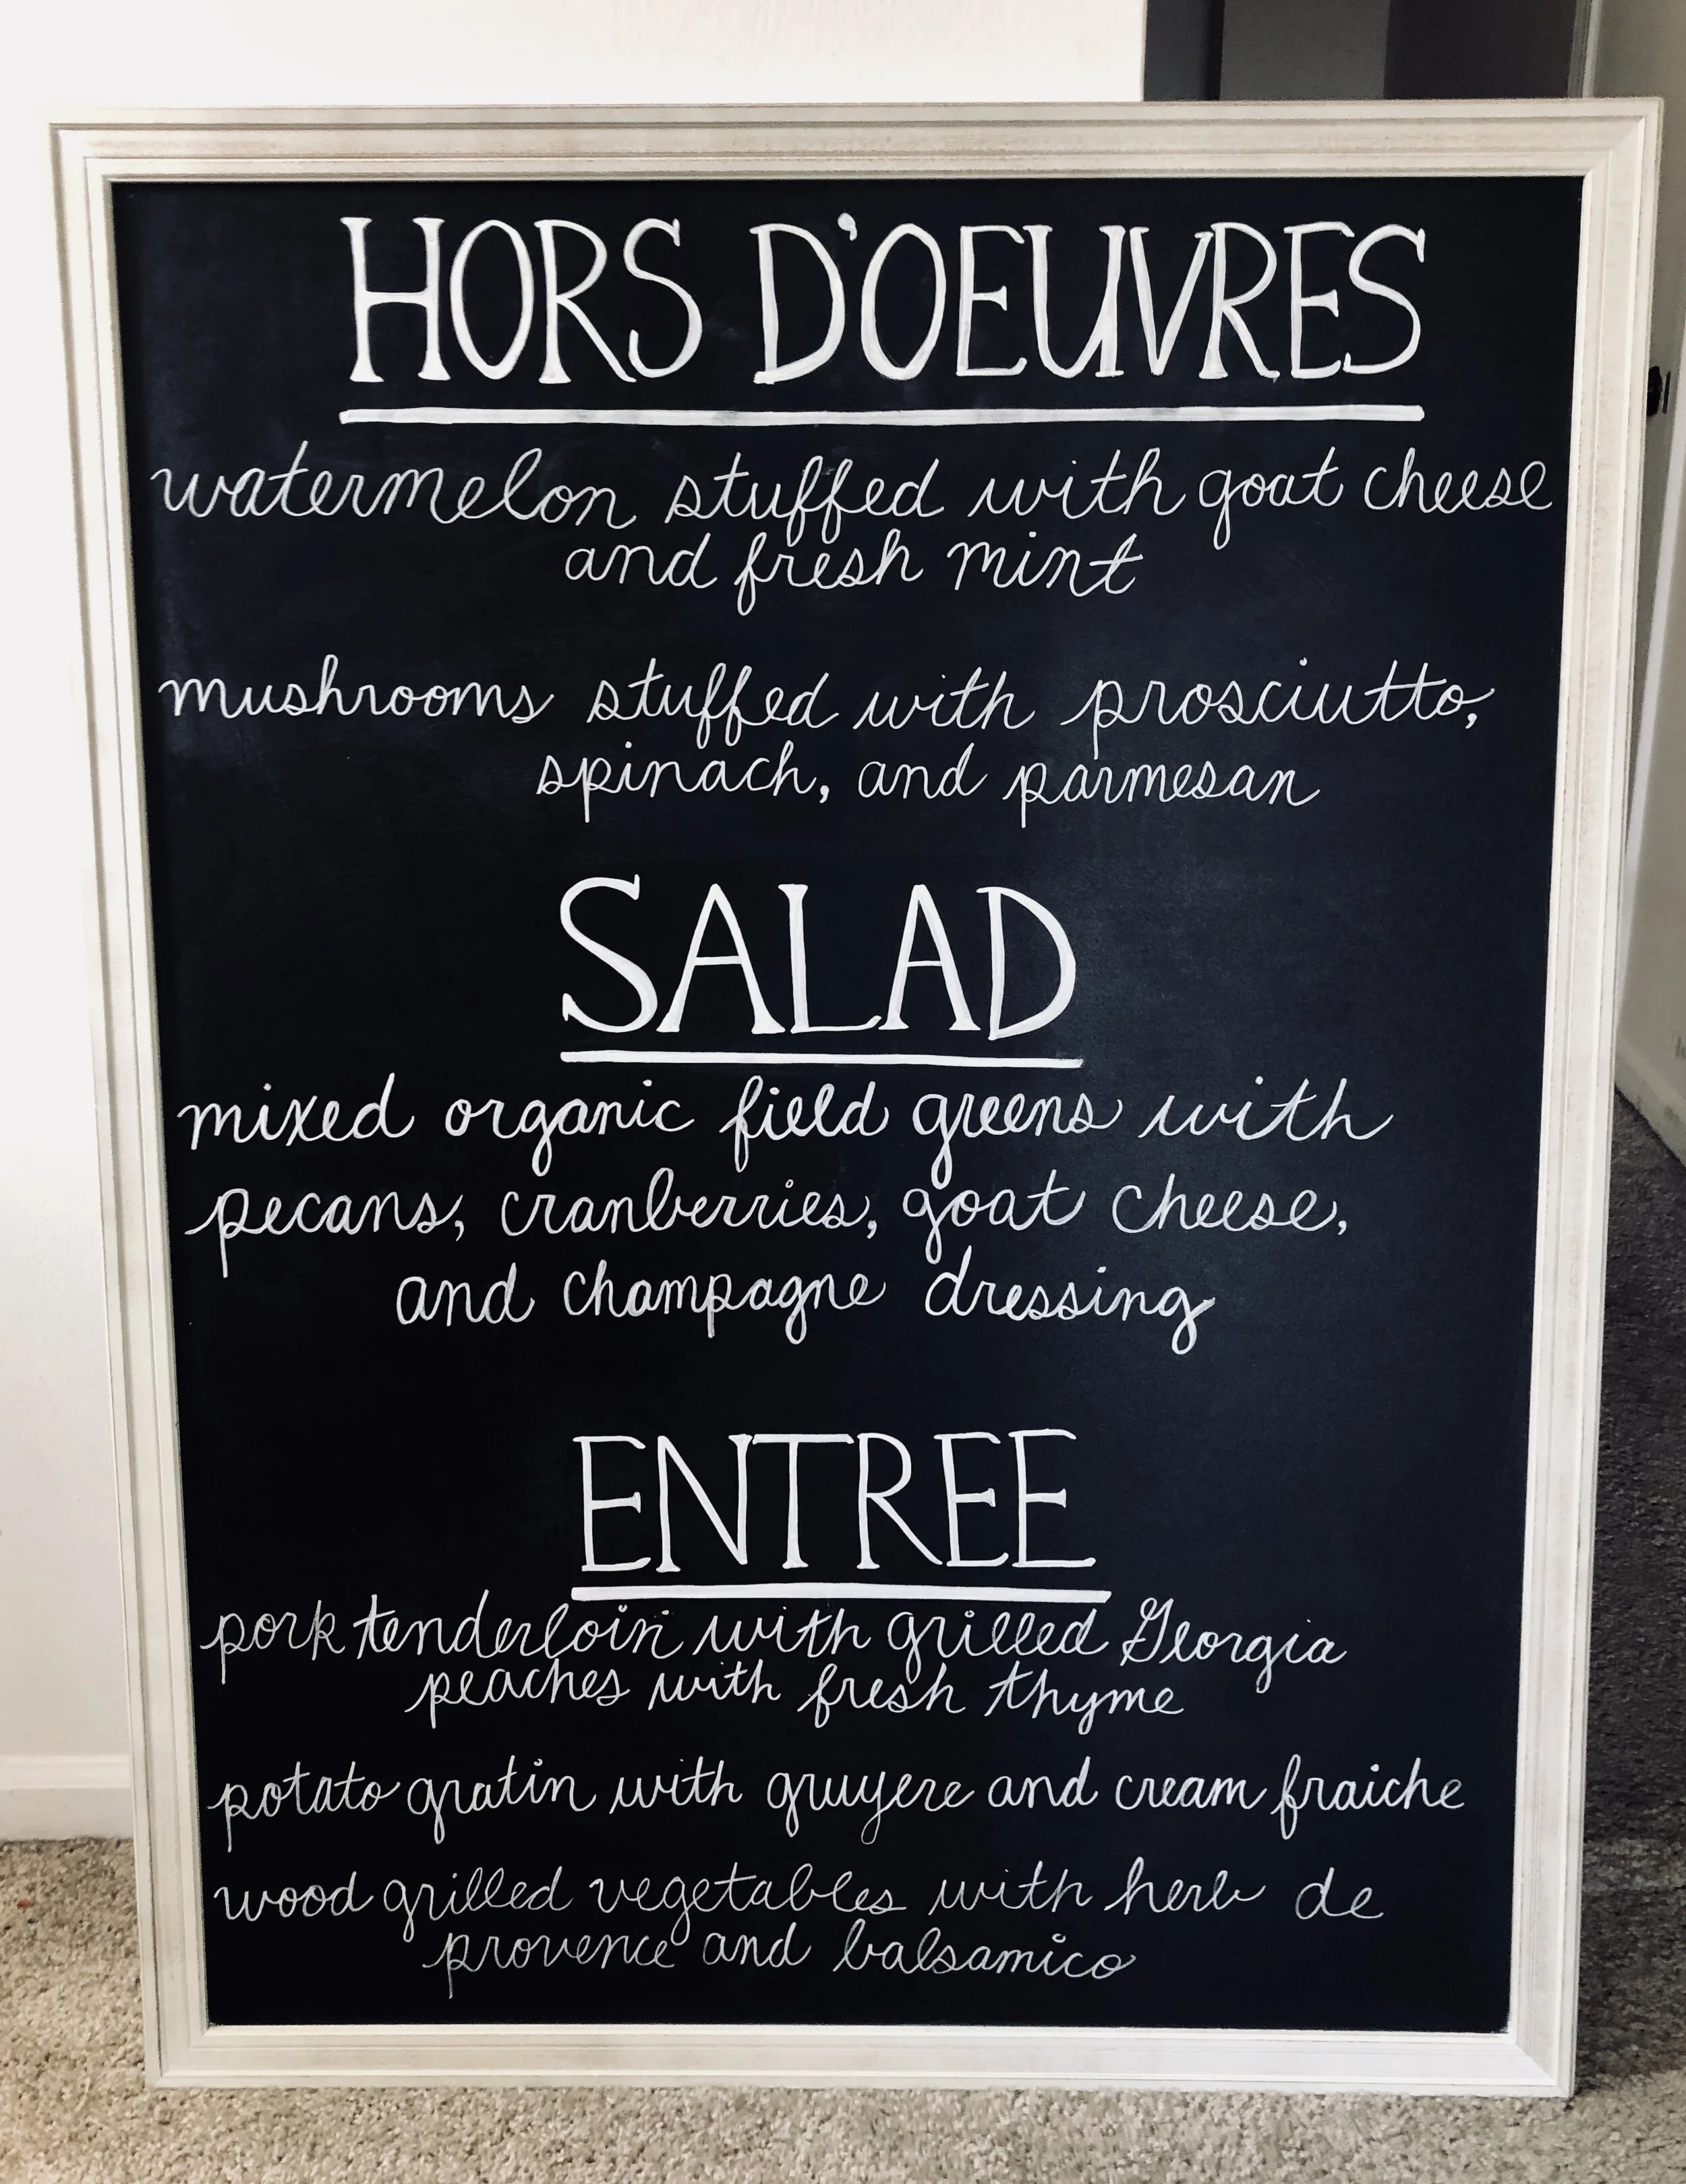 HORS D'OEUVRES
watermelon stuffed with goat cheese
and fresh mint
mushrooms stuffed with prosciutto,
spinach, and parmesan
SALAD
mixed organic field greens with
pecans, cranberries, goat cheese,
and champagne dressing
ENTREE
pork tenderloin with grilled Georgia
peaches with fresh thyme
potato gratin with gruyere and cream fraiche
wood grilled vegetables with herb de
provence and balsamico